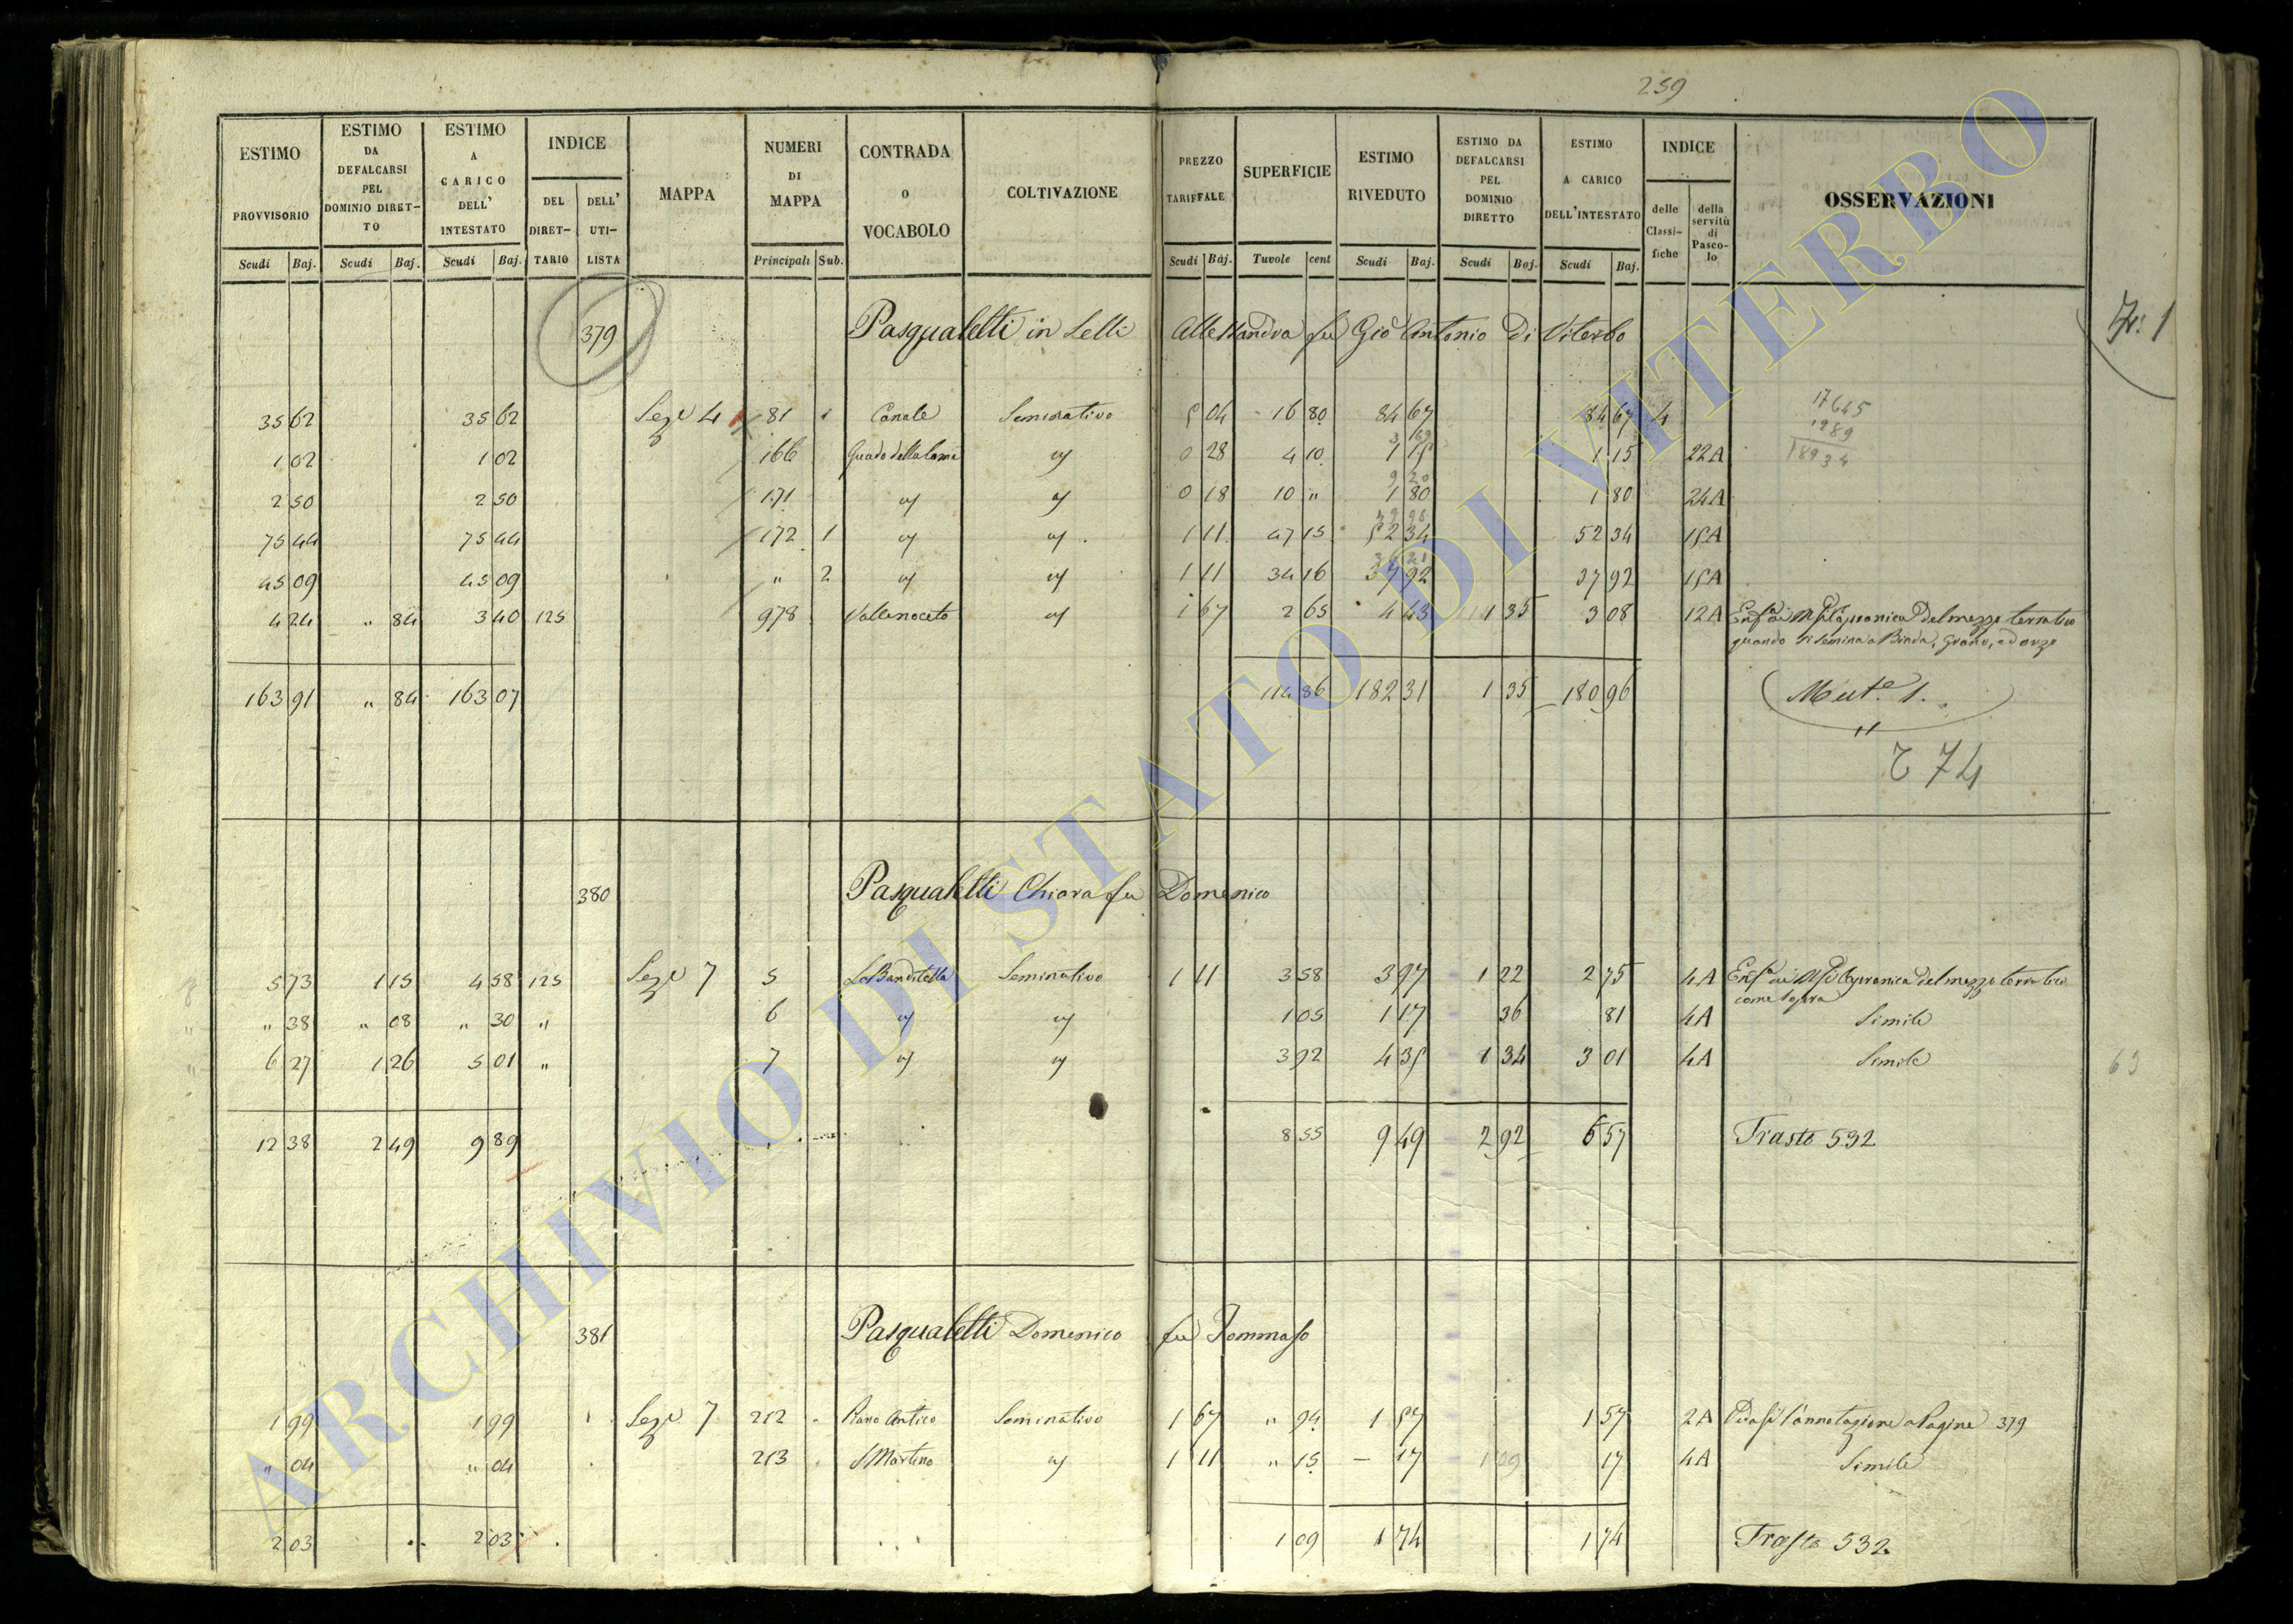 259
ESTIMO PROVVISORIO Scudi Baj.
ESTIMO DA DEFALCARSI PEL DOMINIO DIRET-TO Scudi Baj.
ESTIMO A CARICO DELL' INTESTATO Scudi Baj.
INDICE DEL DIRET-TARIO DELL' UTI-LISTA
MAPPA
NUMERI DI MAPPA Principali Sub.
CONTRADA o VOCABOLO
COLTIVAZIONE
PREZZO TARIFFALE Scudi Baj.
SUPERFICIE Tavole cent
ESTIMO RIVEDUTO Scudi Baj.
ESTIMO DA DEFALCARSI PEL DOMINIO DIRETTO Scudi Baj.
ESTIMO A CARICO DELL'INTESTATO Scudi Baj.
INDICE delle Classi-fiche della servitù di Pasco-lo
OSSERVAZIONI
379 Pasqualetti in Lelli Allessandra fu Gio Antonio Di Viterbo
35 62 35 62 Sez 4 81 Canale Seminativo 5 04 16 80 84 67 84 67 4
17645
1289
18934
1 02 1 02 166 Guado della 0 28 4 10 1 15 1 15 22A
2 50 2 50 171 0 18 10 " 1 80 1 80 24A
75 44 75 44 172 1 1 11 47 15 52 34 52 34 15A
45 09 45 09 " 2 1 11 34 16 37 92 37 92 15A
4 24 " 84 3 40 125 978 Vallenoceto 1 67 2 65 4 43 1 35 3 08 12A del mezzo terratico
quando si semina a Biada, Grano, ed orzo
163 91 " 84 163 07 114 86 182 31 1 35 180 96 Mut.e 1.
74
380 Pasqualetti Chiara fu Domenico
5 73 1 15 4 58 125 Sez 7 5 La Banditella Seminativo 1 11 3 58 3 97 1 22 2 75 4A del mezzo terratico
come sopra
" 38 " 08 " 30 " 6 1 05 1 17 36 81 4A Simile
6 27 1 26 5 01 " 7 3 92 4 35 1 34 3 01 4A Simile
63
12 38 2 49 9 89 8 55 9 49 2 92 6 57 Trasto 532
381 Pasqualetti Domenico fu Tommaso
1 99 1 99 Sez 7 212 Piano Antico Seminativo 1 67 " 94 1 57 1 57 2A Vedasi l'annotazione a Pagine 379
" 04 " 04 213 S Martino 1 11 " 15 — 17 1 09 17 4A Simile
2 03 2 03 1 09 1 74 1 74 Trasto 532
ARCHIVIO DI STATO DI VITERBO